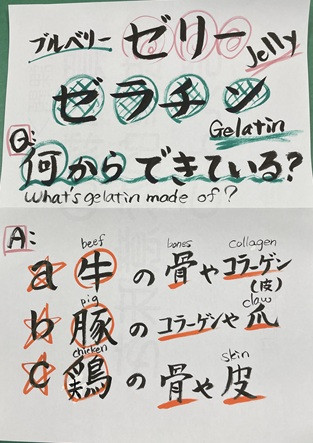 ブルベリー ゼリー
Jelly
ゼラチン
Gelatin
Q:
何からできている?
What's gelatin made of?
A:
beef bones collagen
a 牛の骨やコラーゲン
(皮)
pig claw
b 豚のコラーゲンや爪
chicken skin
c 鶏の骨や皮